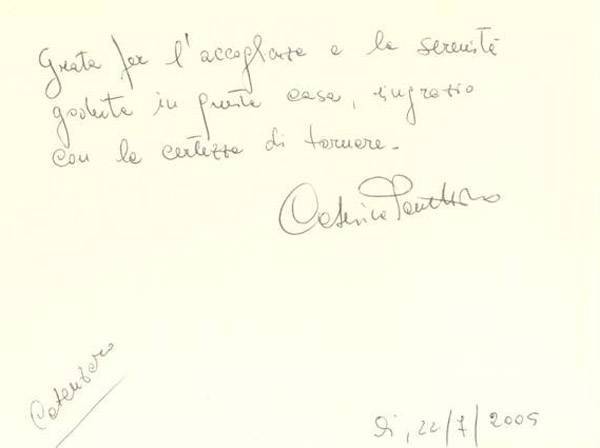 Grata per l'accoglienza e la serenità
goduta in questa casa, ringrazio
con la certezza di tornare.
Caterina
Catanzaro
li, 22/7/2005